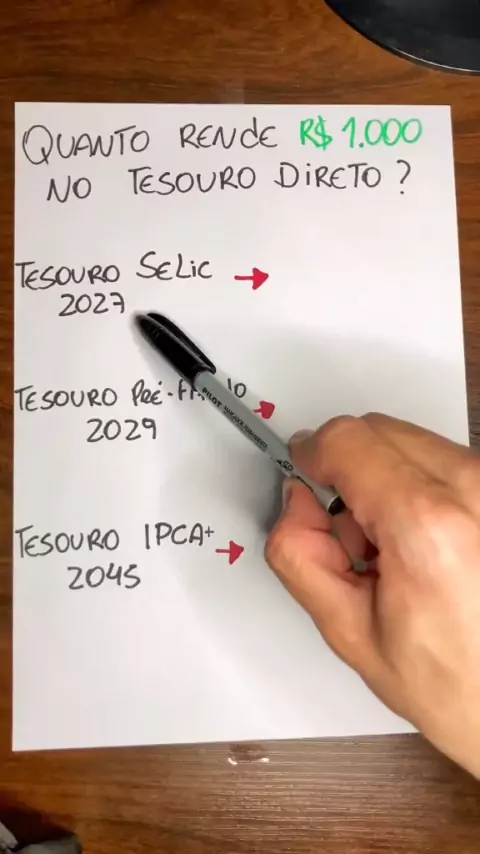 QUANTO RENDE R$ 1.000
NO TESOURO DIRETO?
TESOURO SELIC
2027
TESOURO PRÉ-
2029
TESOURO IPCA+
2045
PILOT